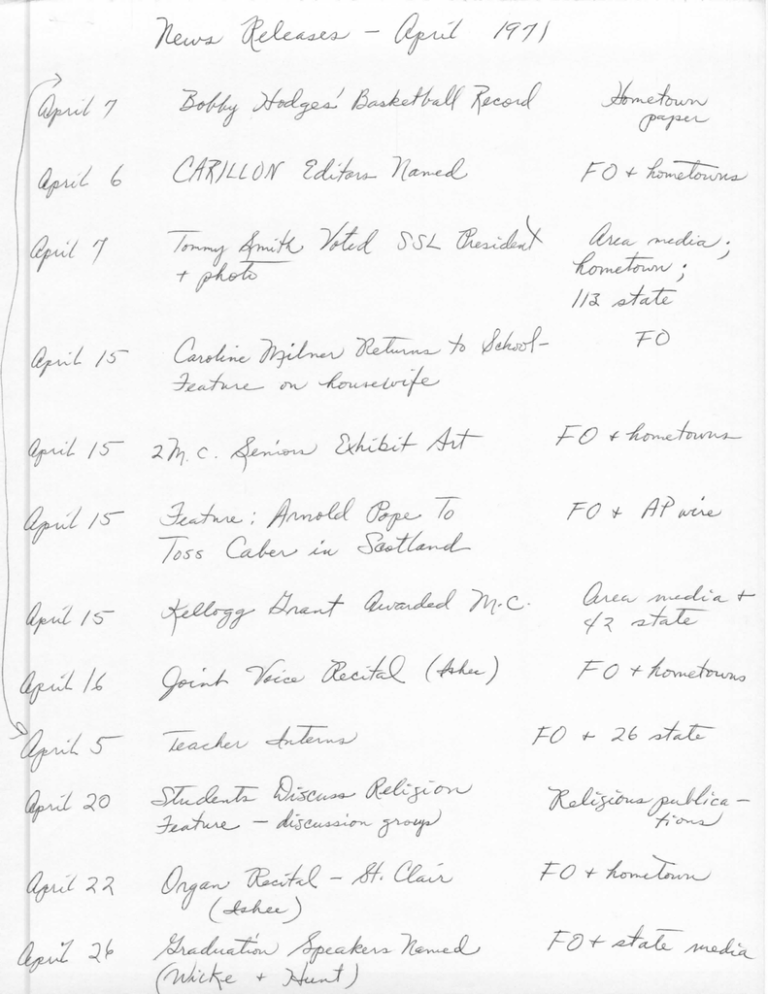 News Releases - April 1971
April 7 Bobby Hodges' Basketball Record Hometown
paper
April 6 CARILLON Editors Named FO + hometowns
April 7 Tommy Smith Voted SSL President Area media;
+ photo hometown;
113 state
April 15 Caroline Milner Returns to School- FO
Feature on housewife
April 15 2 M.C. Seniors Exhibit Art FO + hometowns
April 15 Feature: Arnold Pope To FO + AP wire
Toss Caber in Scotland
April 15 Kellogg Grant Awarded M.C. Area media +
42 state
April 16 Joint Voice Recital (Ishee) FO + hometowns
April 5 Teacher Interns FO + 26 state
April 20 Students Discuss Religion Religious publica-
Feature - discussion groups tions
April 22 Organ Recital - St. Clair FO + hometown
(Ishee)
April 26 Graduation Speakers Named FO + state media
(Wicke + Hunt)